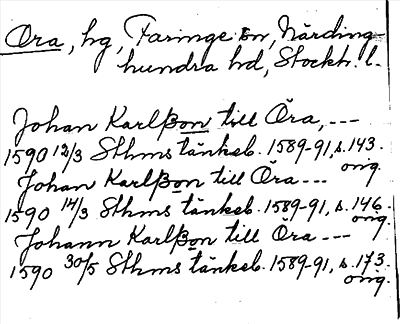 Ora, hg, Faringe sn, Närding-
hundra hd, Stockh. l.
Johan Karlsson till Öra, ---
1590 12/3 Sthms tänkeb. 1589-91, s. 143.
orig.
Johan Karlsson till Öra ---
1590 14/3 Sthms tänkeb. 1589-91, s. 146.
orig.
Johann Karlsson till Öra ---
1590 30/5 Sthms tänkeb. 1589-91, s. 173.
orig.